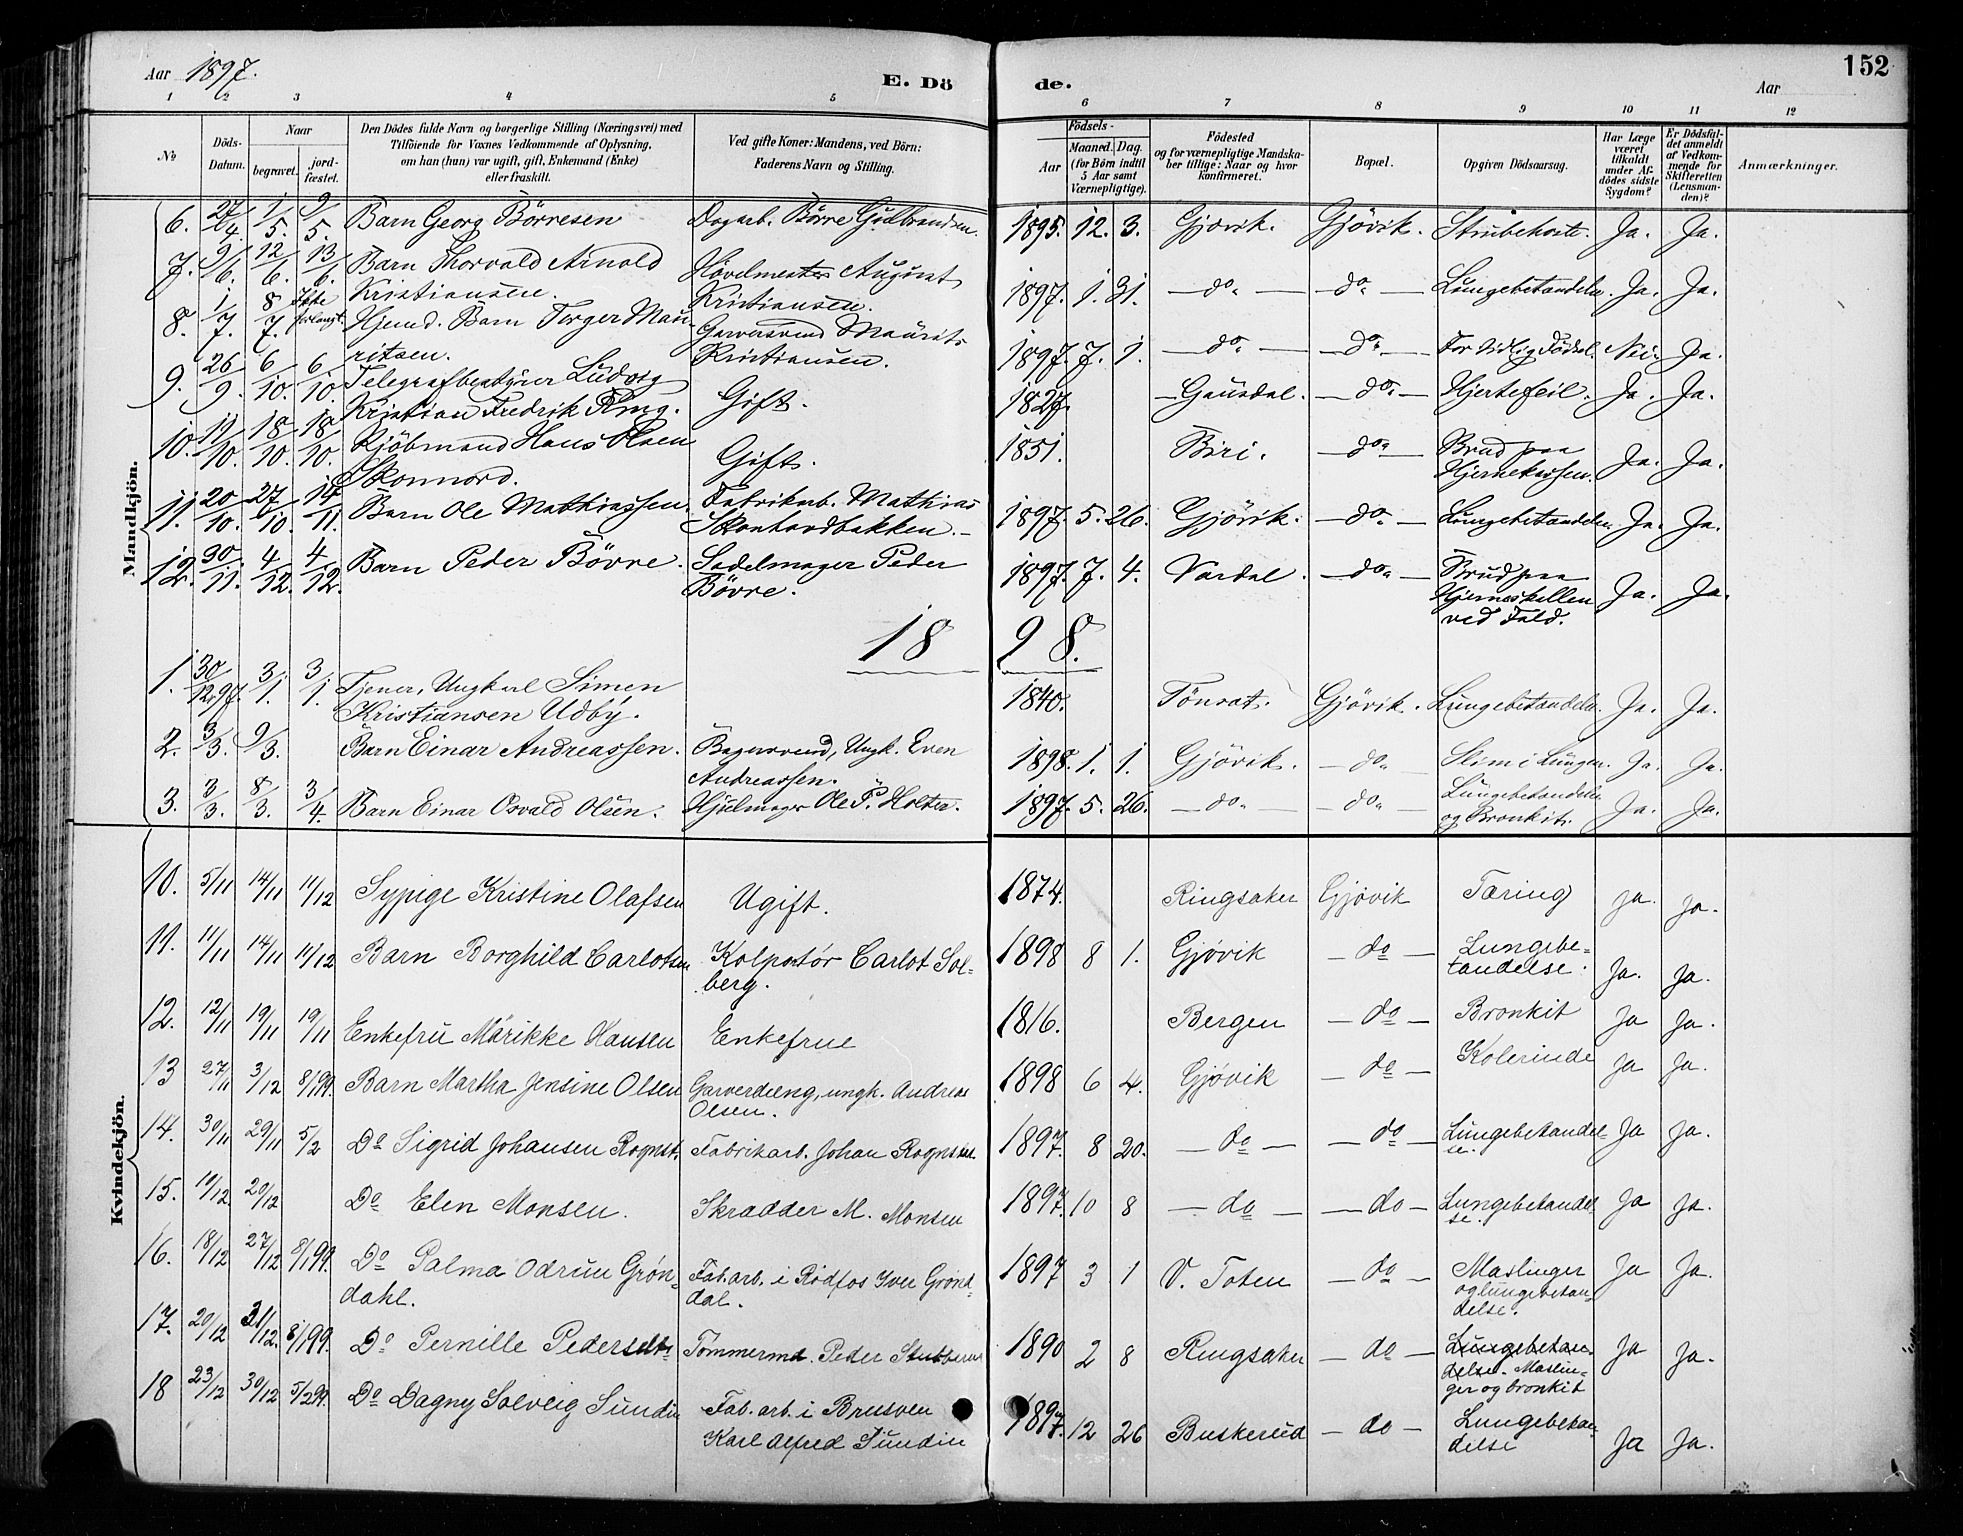 Aar 1897.
E. Dö
de.
Aar
152
1 2 3 4 5 6 7 8 9 10 11 12
No
Döds-Datum.
Naar begravet. jord-fæstet.
Den Dödes fulde Navn og borgerlige Stilling (Næringsvei) med
Tilföiende for Voxnes Vedkommende af Oplysning,
om han (hun) var ugift, gift, Enkemand (Enke)
eller fraskilt.
Ved gifte Koner: Mandens, ved Börn:
Faderens Navn og Stilling.
Födsels-
Aar Maaned. Dag.
(for Börn indtil
5 Aar samt
Værnepligtige).
Födested
og for værnepligtige Mandska-
ber tillige: Naar og hvor
konfirmeret.
Bopæl.
Opgiven Dödsaarsag.
Har Læge
været
tilkaldt
under Af-
dödes sidste
Sygdom?
Er Dödsfal-
det anmeldt
af Vedkom-
mende for
Skifteretten
(Lensman-
den)?
Anmærkninger.
Mandkjön.
6. 27/4 1/5. 9/5. Barn Georg Börresen Dagarb. Börre Gudbrandsen. 1895. 12. 3. Gjövik. Gjövik. Strubehoste. Ja. Ja.
7. 9/6. 12/6. 13/6. Barn Thorvald Arnold Hövelmester August 1897. 1. 31. do. do. Lungebetændelse. Ja. Ja.
Kristiansen. Kristiansen.
8. 1/7. 8/7. Ikke forlangt. Hjemd. Barn Torger Mau- Garversvend Maurits 1897. 7. 1. do. do. For tidlig Födsel. Nei. Ja.
ritsen. Kristiansen.
9. 26/9. 6/10. 6/10. Telegrafbestyrer Ludvig Gift. 1827. Gausdal. do. Hjertefeil. Ja. Ja.
Kristian Fredrik Ring.
10. 11/10. 18/10. 18/10. Kjöbmand Hans Olsen Gift. 1851. Biri. do. Brud paa Ja. Ja.
Skonnord. Hjernekassen.
11. 20/10. 27/10. 14/11. Barn Ole Mathiassen. Fabrikarb. Mathias 1897. 5. 26. Gjövik. do. Lungebetændelse. Ja. Ja.
Skonhordbakken.
12. 30/11. 4/12. 4/12. Barn Peder Bövre. Sadelmager Peder 1897. 7. 4. Vardal. do. Brud paa Ja. Ja.
Bövre. Hjerneskallen
ved Fald.
1898.
1. 30/12.97. 3/1. 3/1. Tjener, Ungkarl Simen 1840. Tönsat. Gjövik. Lungebetændelse. Ja. Ja.
Kristiansen Udby.
2. 3/3. 9/3. Barn Einar Andreassen. Bagersvend, Ungk. Even 1898. 1. 1. Gjövik. do. Slim i Lungen. Ja. Ja.
Andreassen.
3. 3/3. 8/3. 3/4. Barn Einar Osvald Olsen. Hjulmager Ole P. Holter. 1897. 5. 26. do. do. Lungebetændelse Ja. Ja.
og Bronkit.
Kvindekjön.
10. 5/11 14/11 11/12 Sypige Kristine Olafsen Ugift. 1874. Ringsaker Gjövik Tæring ja. ja.
11. 11/11 14/11 11/12 Barn Borghild Carlotsen Kolportør Carlot Sol- 1898 8 1. Gjövik do Lungebe-
berg. tændelse. Ja. Ja.
12. 12/11 19/11 19/11 Enkefru Mārikke Hansen Enkefrue 1816. Bergen do Bronkit Ja Ja.
13 27/11 3/12 8/1 99. Barn Martha Jensine Olsen Garverdreng, ungk. Andreas 1898 6 4. Gjövik do Kolerinde Ja Ja.
Olsen.
14. 30/11 29/11 5/2 Do Sigrid Johansen Rognst. Fabrikarb. Johan Rognstad 1897. 8 20. do do Lungebetændel- Ja Ja.
se.
15. 10/12. 20/12 Do Elen Monsen. Skrædder M. Monsen 1897. 10 8 do do Lungebetændel- Ja Ja.
se.
16. 18/12 27/12 8/1 99. Do Palma Odrun Grøn- Fab.arb. i Rødfos Iver Grønd- 1897 3 1 V. Toten do Maslinger Ja Ja.
dahl. dal. og lungebetæn-
delse.
17. 20/12 31/12. 8/1 99. Do Pernille Pedersdtr Tømmermd. Peder Stubberud 1890 2 8 Ringsaker do Lungebetæn- Ja Ja.
delse. Maslin-
ger og bronkit
18 23/12 30/12 5/2 99. Do Dagny Solveig Sundin Fab. arb. i Brusveen 1897. 12 26 Buskerud do Lungebetæn- Ja Ja.
Karl Alfred Sundin delse